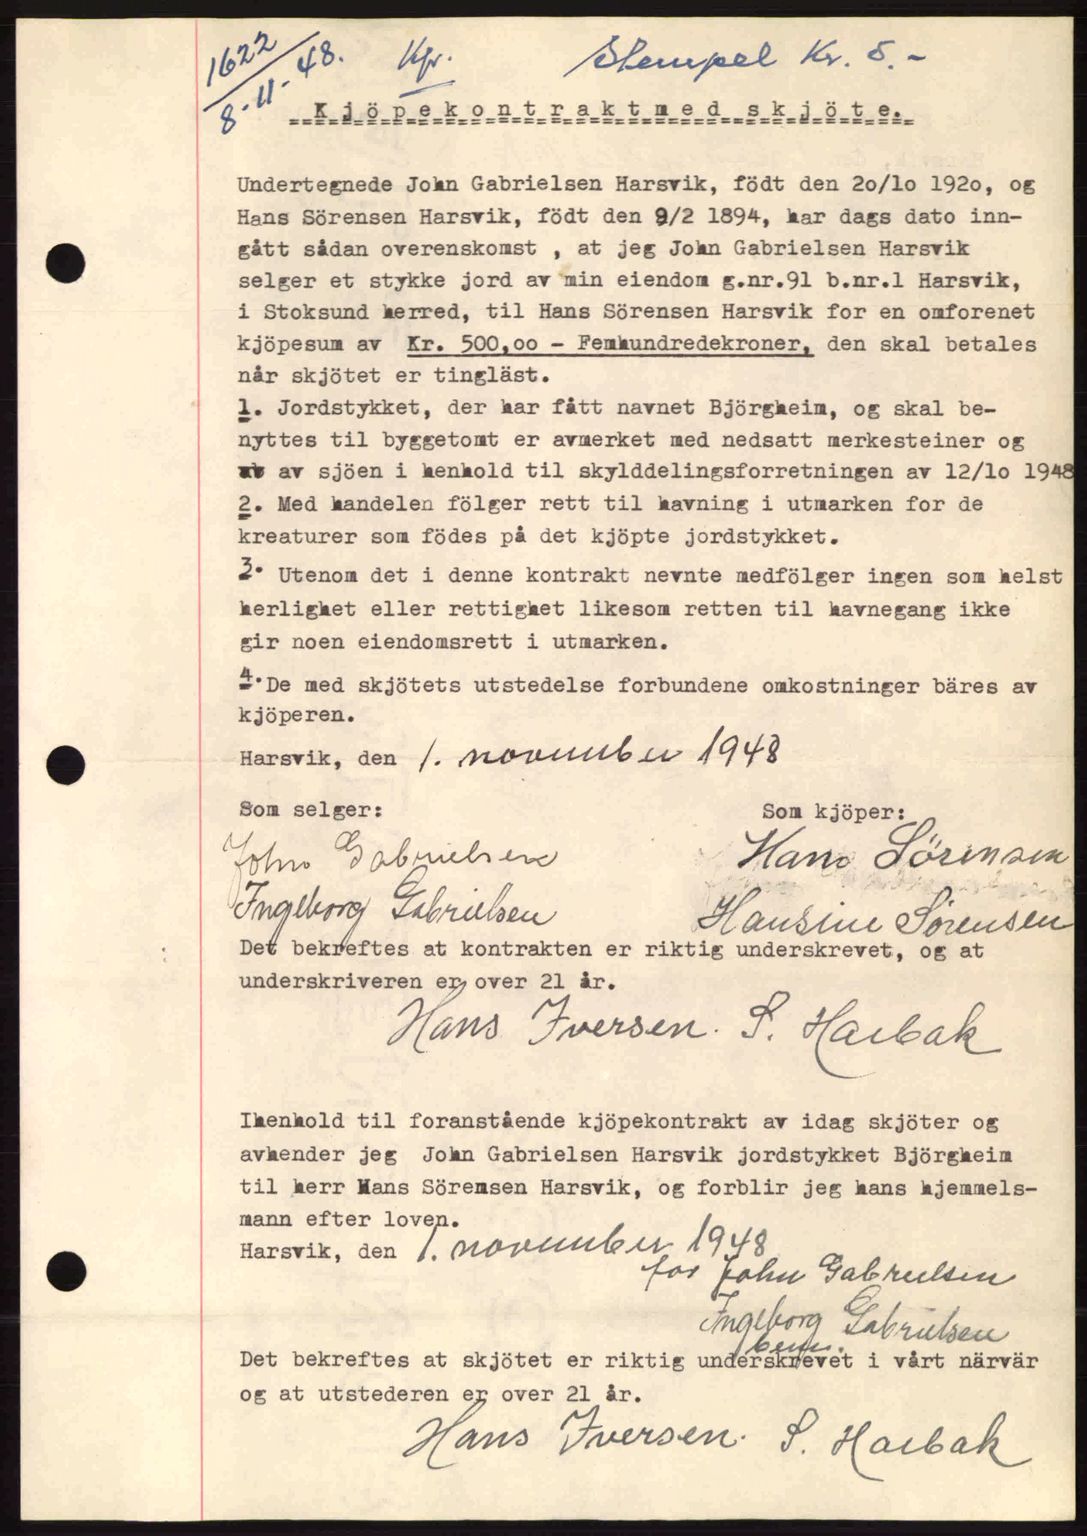 1622
8-11-48.
Kfr.
Stempel Kr. 5.-
Kjöpekontraktmed skjöte.
Undertegnede John Gabrielsen Harsvik, födt den 2o/1o 192o, og
Hans Sörensen Harsvik, födt den 9/2 1894, har dags dato inn-
gått sådan overenskomst , at jeg John Gabrielsen Harsvik
selger et stykke jord av min eiendom g.nr.91 b.nr.1 Harsvik,
i Stoksund herred, til Hans Sörensen Harsvik for en omforenet
kjöpesum av Kr. 500,oo - Femhundredekroner, den skal betales
når skjötet er tingläst.
1. Jordstykket, der har fått navnet Björgheim, og skal be-
nyttes til byggetomt er avmerket med nedsatt merkesteiner og
av sjöen i henhold til skylddelingsforretningen av 12/1o 1948
2. Med handelen fölger rett til havning i utmarken for de
kreaturer som födes på det kjöpte jordstykket.
3. Utenom det i denne kontrakt nevnte medfölger ingen som helst
herlighet eller rettighet likesom retten til havnegang ikke
gir noen eiendomsrett i utmarken.
4. De med skjötets utstedelse forbundene omkostninger bäres av
kjöperen.
Harsvik, den 1. november 1948
Som selger: Som kjöper:
John Gabrielsen Hans Sørensen
Ingeborg Gabrielsen Hansine Sørensen
Det bekreftes at kontrakten er riktig underskrevet, og at
underskriveren er over 21 år.
Hans Iversen. S. Harbak
Ihenhold til foranstående kjöpekontrakt av idag skjöter og
avhender jeg John Gabrielsen Harsvik jordstykket Björgheim
til herr Hans Sörensen Harsvik, og forblir jeg hans hjemmels-
mann efter loven.
Harsvik, den 1. november 1948
for John Gabrielsen
Ingeborg Gabrielsen
Det bekreftes at skjötet er riktig underskrevet i vårt närvär
og at utstederen er over 21 år.
Hans Iversen. S. Harbak